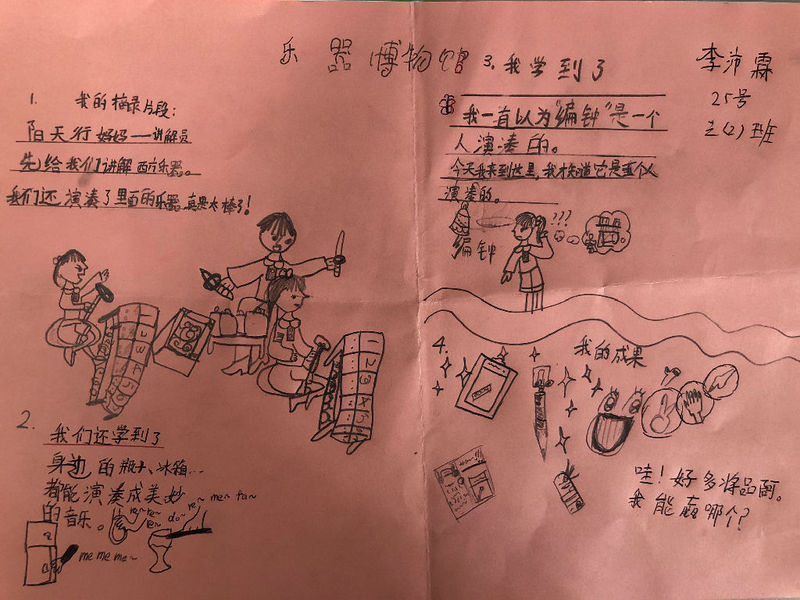 乐器博物馆
李沛霖
25号
2(2)班
1. 我的摘录片段:
阳天行妈妈——讲解员
先给我们讲解西方乐器。
我们还演奏了里面的乐器,真是太棒了!
2.
我们还学到了
身边的瓶、冰箱…
都能演奏成美妙
的音乐。
me me me~
re~ re~ re~
do~ re~ me~ fa~
3. 我学到了
我一直以为"编钟"是一个
人演凑的。
今天我来到这里,我才知道它是五个人
演凑的。
编钟
???
4. 我的成果
哇!好多奖品啊。
我能赢哪个?